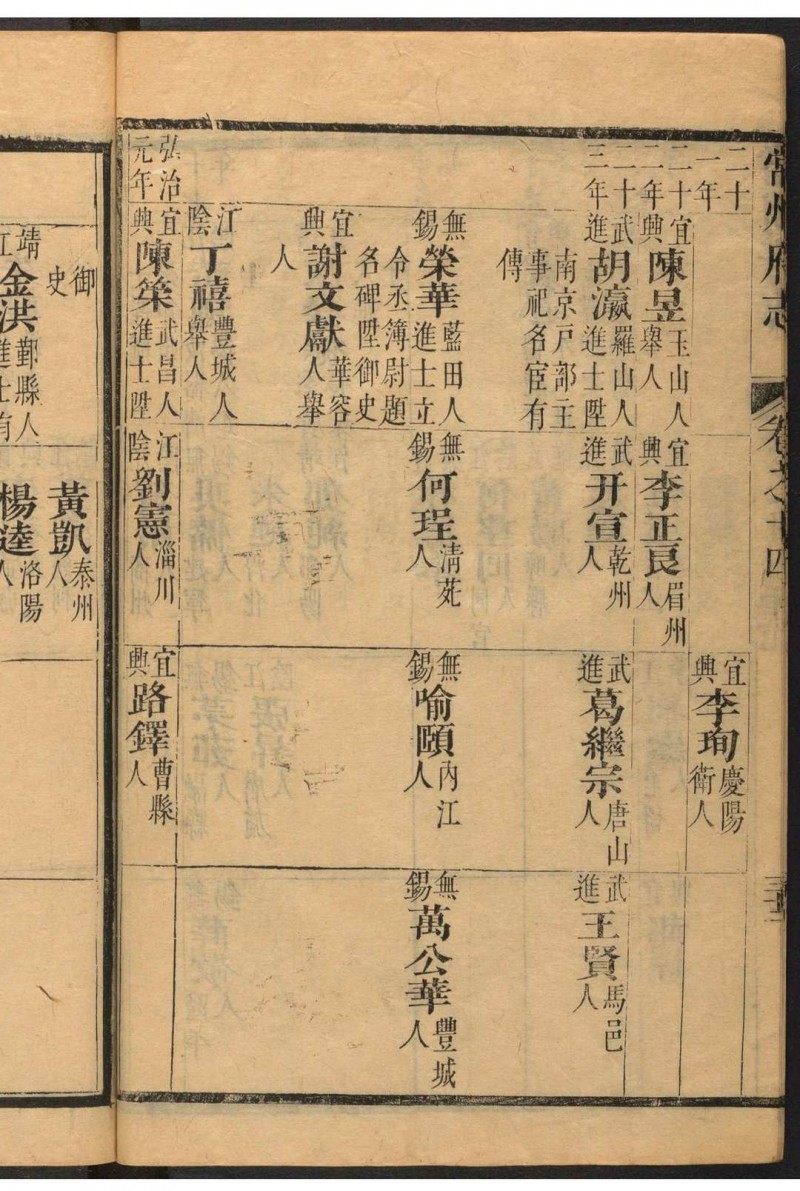 常州府志
卷之十四
二十一年
宜興李珣慶陽衛人
二十二年
宜興陳昱玉山人舉人
宜興李正艮眉州人
二十三年
武進胡瀛羅山人進士陞南京戸部主事祀名宦有傳
武進开宣乾州人
武進葛繼宗唐山人
武進王賢馬邑人
無錫榮華藍田人進士立令丞簿尉題名碑陞御史
無錫何珵清苑人
無錫喻頤內江人
無錫萬公華豐城人
宜興謝文獻華容人舉人
江陰丁禧豐城人舉人
弘治元年
宜興陳筞武昌人進士陞
江陰劉憲淄川人
宜興路鐸曹縣人
御史
黃凱泰州人
靖江金洪鄞縣人進士有
楊逵洛陽人